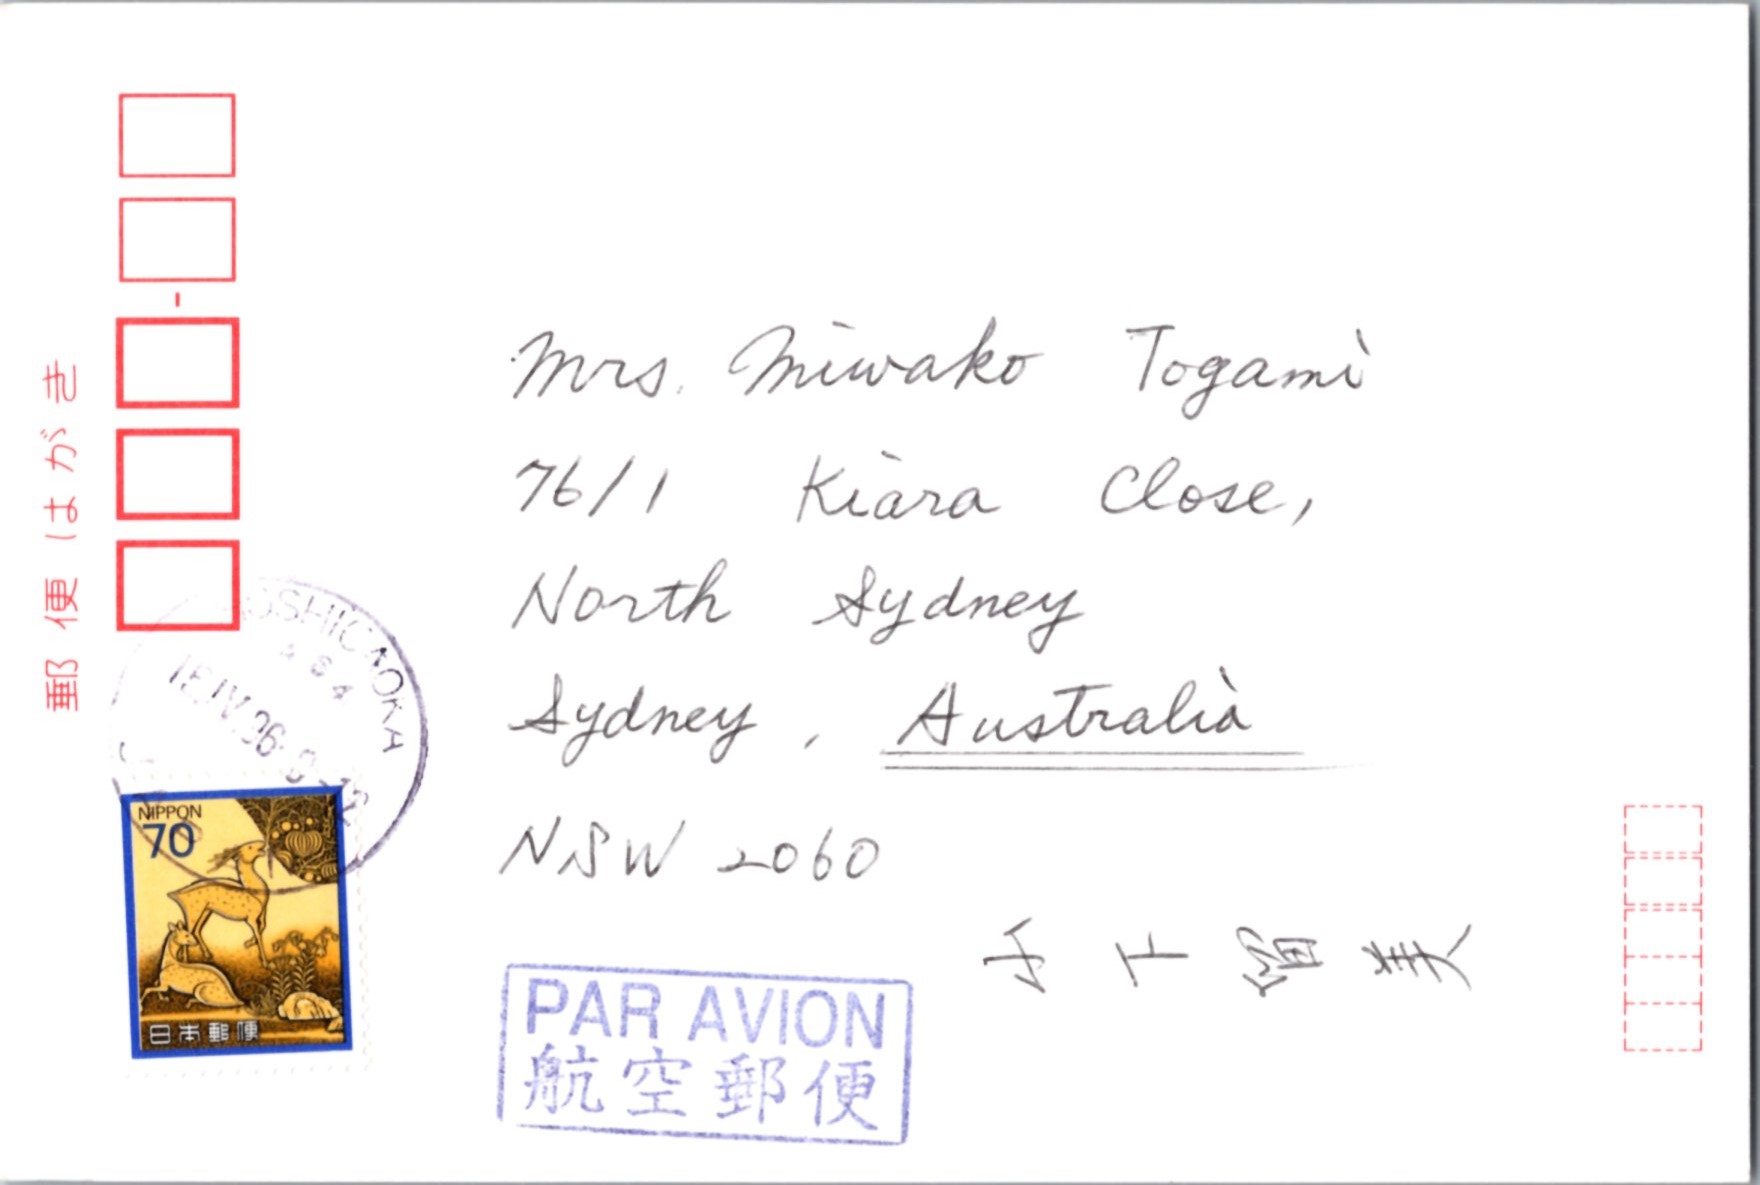 郵便はがき
Mrs. Miwako Togami
76/1 Kiara Close,
North Sydney
Sydney, Australia
NSW 2060
NIPPON
70
日本郵便
PAR AVION
航空郵便